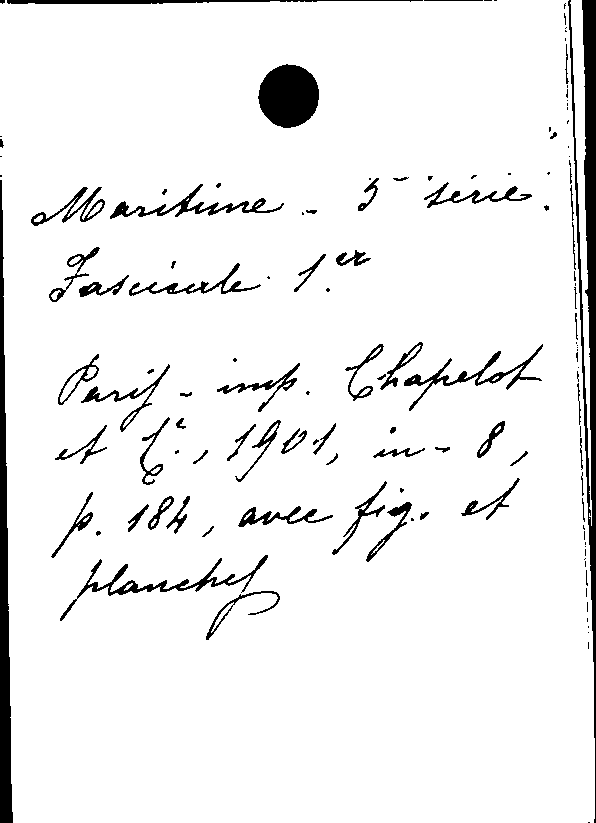 Maritime - 5e série.
Fascicule 1.er
Paris - imp. Chapelot
et Cie., 1901, in-8,
p. 184, avec fig. et
planches